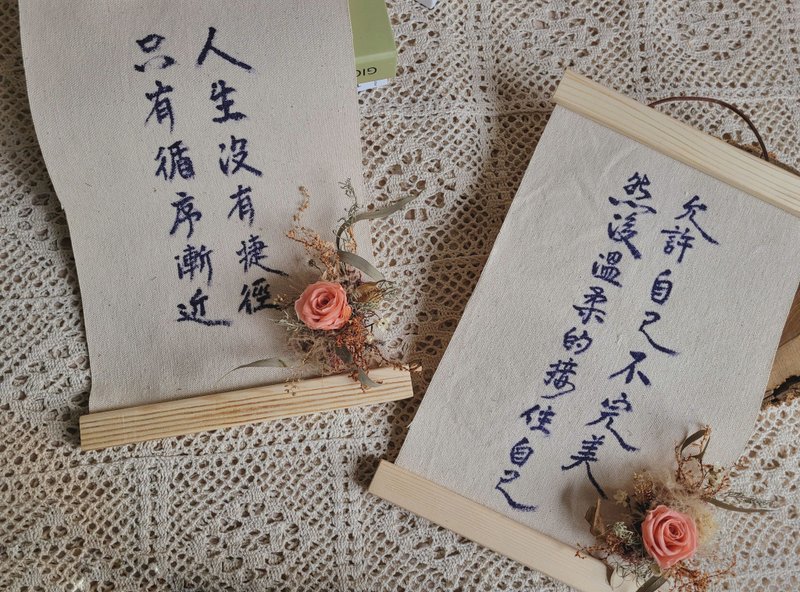 人生沒有捷徑
只有循序漸近
允許自己不完美
然後溫柔的接住自己
GIO